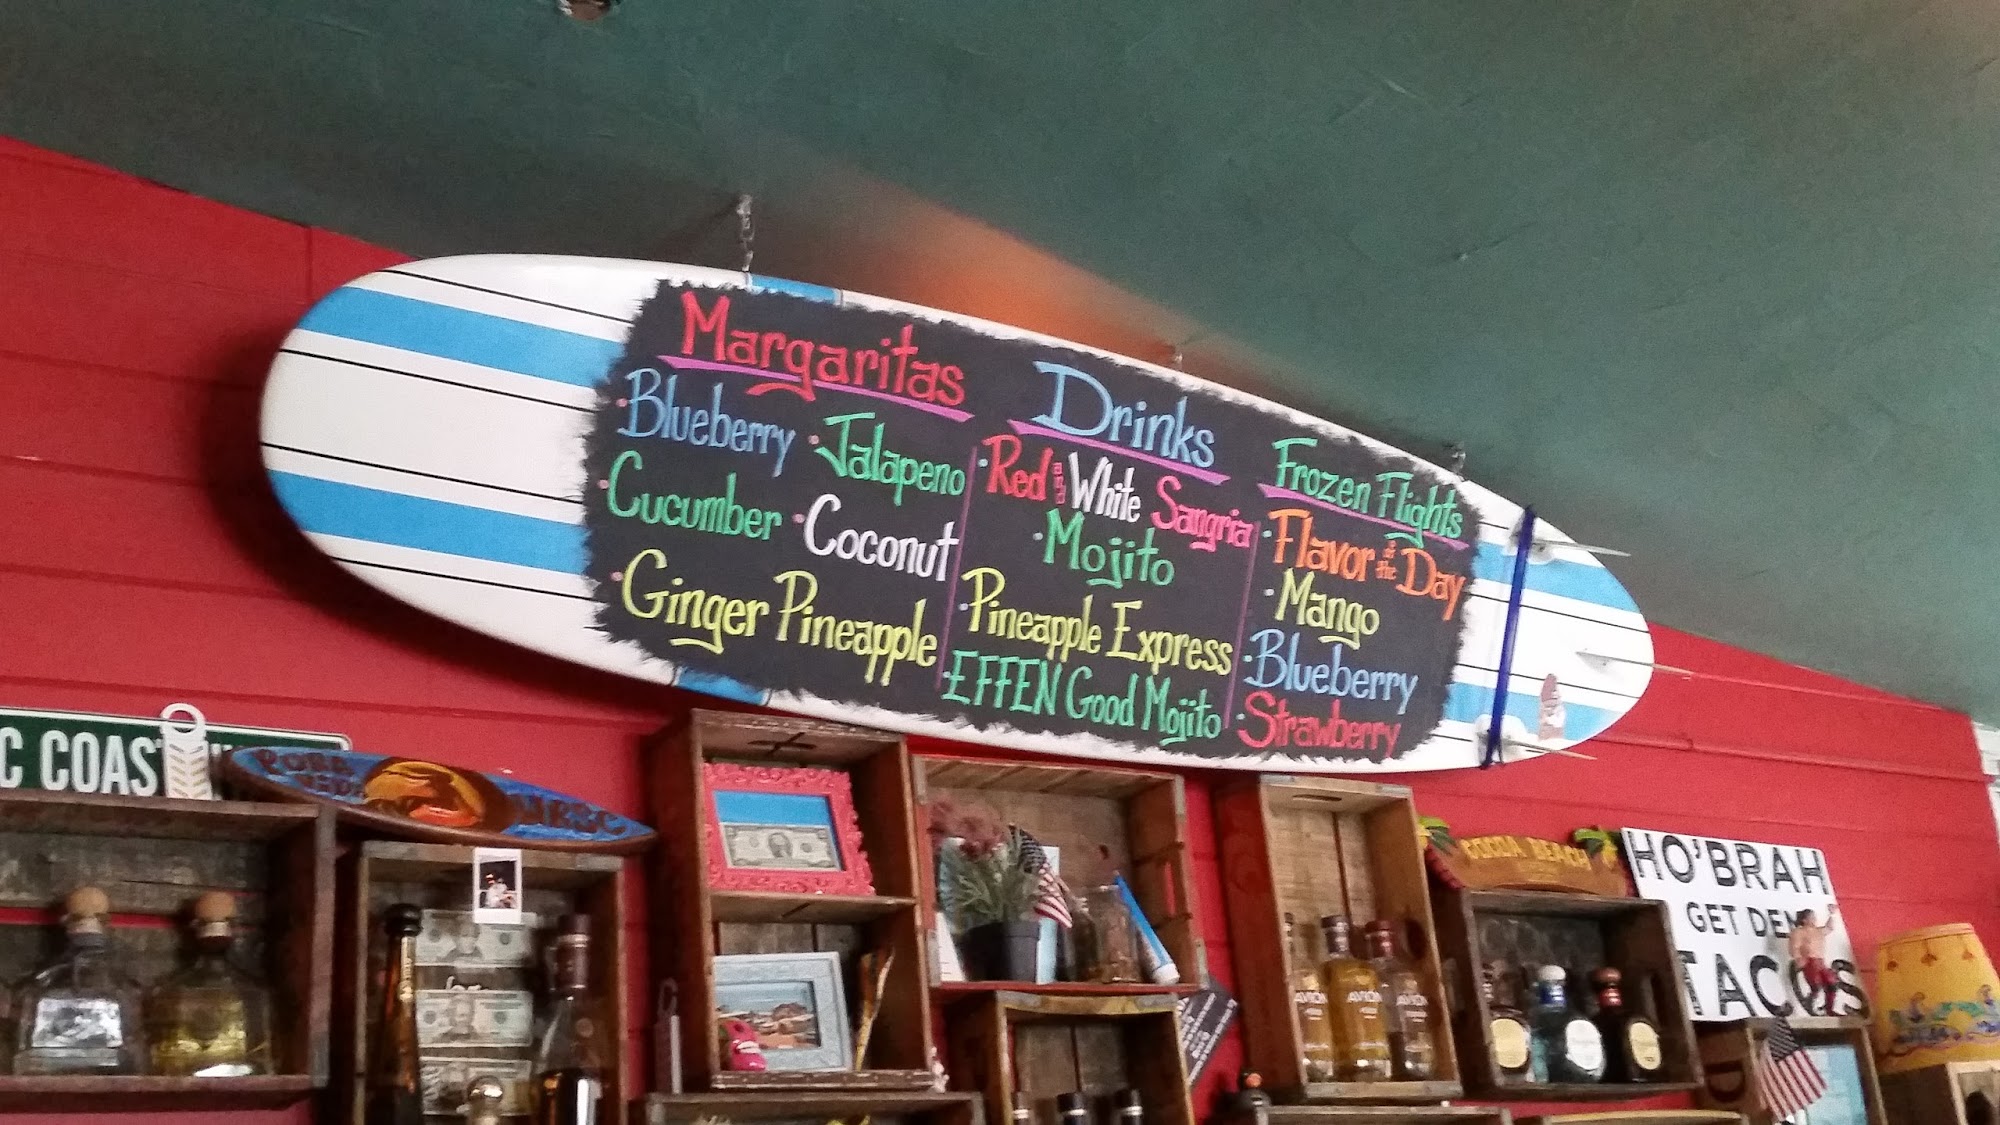 Margaritas
• Blueberry • Jalapeno
• Cucumber • Coconut
• Ginger Pineapple
Drinks
• Red and White Sangria
• Mojito
• Pineapple Express
• EFFEN Good Mojito
Frozen Flights
• Flavor of the Day
• Mango
• Blueberry
• Strawberry
C COAST
COCOA BEACH
HO'BRAH
GET DEM
TACOS
AVION
AVION
AVION